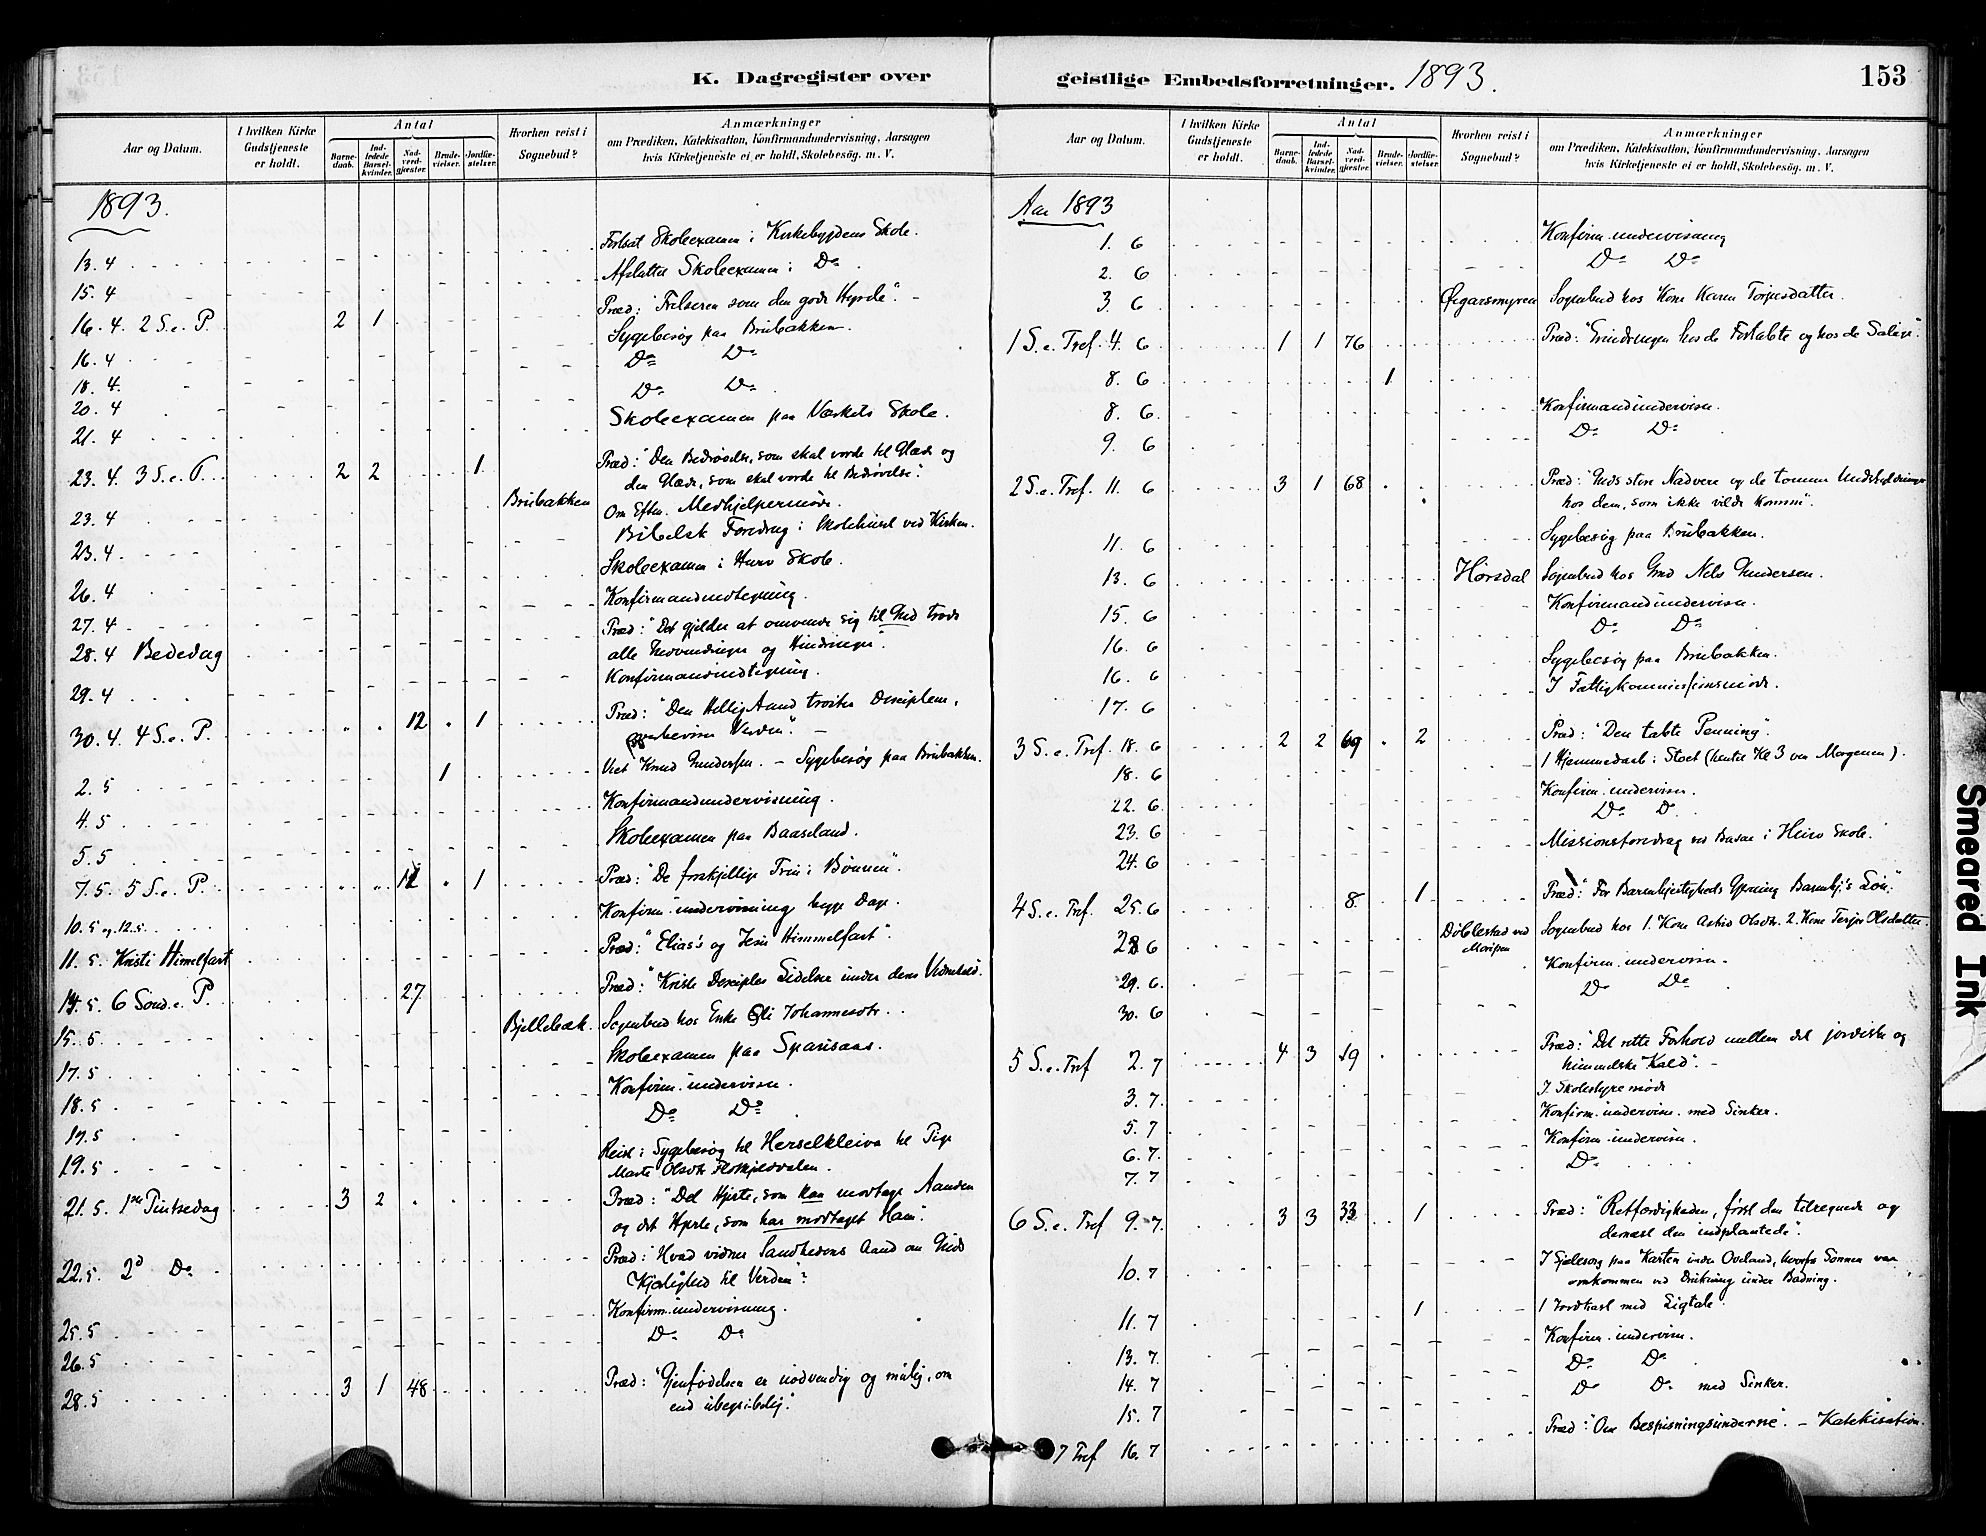 K. Dagregister over
Aar og Datum.
I hvilken Kirke Gudstjeneste er holdt.
Antal
Barnedaab.
Indledede Barselkvinder.
Nadverdgjæster.
Brudevielser.
Jordfæstelser.
Hvorhen reist i Sognebud?
Anmærkninger
om Prædiken, Katekisation, Konfirmandundervisning, Aarsagen
hvis Kirketjeneste ei er holdt, Skolebesög. m. V.
1893.
13. 4 Fortsat Skoleexamen i Kirkebygdens Skole.
15. 4 Afsluttet Skoleexamen i Do
16. 4. 2 S. e. P. 2 1 Præd: "Frelseren som den gode Hyrde".
16. 4 Sygebesøg paa Brubakken
18. 4. Do Do
20. 4 Do Do
21. 4 Skoleexamen paa Værkets Skole.
23. 4. 3 S. e. P. 2 2 1 Præd: "Den Bedrøvelse, som skal vorde til Glæde og
den Glæde, som skal vorde til Bedrøvelse".
23. 4 Brubakken Om Efterm. Medhjelpermøde
23. 4. Bibelsk Foredrag i Skolehuset ved Kirken.
26. 4 Skoleexamen i Huro Skole.
27. 4 Konfirmandindtegning.
28. 4 Bededag Præd: "Det gjelder at omvende sig til Gud trods
alle Indvendinger og Hindringer".
29. 4 Konfirmandindtegning.
30. 4. 4 S. e. P. 12 1 Præd: "Den Hellig Aand trøster Disciplene,
overbeviser Verden".
2. 5 1 Viet Knud Gundersen. – Sygebesøg paa Brubakken.
4. 5 Konfirmandundervisning.
5. 5 Skoleexamen paa Baaseland.
7. 5. 5 S. e. P. 12 1 Præd: "De forskjellige Trin i Bønnen".
10. 5 og 12. 5. Konfirm. undervisning begge Dage.
11. 5. Kristi Himelfart Præd: "Elias's og Jesu Himmelfart".
14. 5. 6 Sønd. e. P. 27 Præd: "Kristi Disciples Lidelser under deres Vidnesbyrd.
15. 5 Bjellebæk. Sognebud hos Enke Oli Johannesdtr.
17. 5 Skoleexamen paa Sparisaas.
18. 5 Konfirm. undervisn.
19. 5 Do Do
19. 5 Reist i Sygebesøg til Herselkleiva til Pige
Marte Olsdtr
21. 5. 1ste Pintsedag 3 2 Præd: "Det Hjerte, som kan modtage Aanden
og det Hjerte, som har modtaget Ham".
22. 5. 2d Do Præd: "Hvad vidner Sandhedens Aand om Guds
Kjærlighed til Verden"?
25. 5 Konfirm. undervisning.
26. 5 Do Do
28. 5 3 1 48 Præd: "Gjenfødelsen er nødvendig og mulig, om
end ubegribelig".
geistlige Embedsforretninger. 1893.
153
Aar og Datum.
I hvilken Kirke Gudstjeneste er holdt.
Antal
Barnedaab.
Indledede Barselkvinder.
Nadverdgjæster.
Brudevielser.
Jordfæstelser.
Hvorhen reist i Sognebud?
Anmærkninger
om Prædiken, Katekisation, Konfirmandundervisning, Aarsagen
hvis Kirketjeneste ei er holdt, Skolebesög. m. V.
Aar 1893
1. 6 Konfirm. undervisning
2. 6 Do Do
3. 6 Øegarsmyren Sognebud hos Kone Karen Torjusdatter
1 S. e. Tref. 4. 6 1 1 76 Præd: "Erindringen hos de Fortabte og hos de Salige".
8. 6 1
8. 6. Konfirmandundervisn.
9. 6 Do Do
2 S. e. Tref. 11. 6 3 1 68 Præd: "Guds store Nadvere og de tomme Undskyldninger
hos dem, som ikke vilde komme".
11. 6 Sygebesøg paa Brubakken.
13. 6 Hørsdal Sognebud hos Gmd Nels Gundersen.
15. 6 Konfirmandundervisn.
16. 6 Do Do
16. 6 Sygebesøg paa Brubakken.
17. 6 I Fattigkommissionsmøde.
3 S. e. Tref. 18. 6 2 2 69 2 Præd: "Den tabte Penning".
18. 6 1 Hjemmedaab i (hentet Kl 3 om Morgenen).
22. 6. Konfirm. undervisn.
23. 6 Do D
24. 6 Missionsforedrag ved Basar i Huro Skole.
4 S. e. Tref. 25. 6 8 1 Præd: "For Barmhjertigheds Barmhj's Løn".
28 6 Dölestad ved Sognebud hos 1. Kone Astrid Olsdtr. 2. Kone Terjer Olsdatter
29. 6. Konfirm. undervisn.
30. 6 Do Do
5 S. e. Tref 2. 7 4 3 19 Præd: "Det rette Forhold mellem det jordiske og
himmelske Kald".
3. 7. I Skolestyremøde
5. 7 Konfirm. undervisn. med Sinker.
6. 7. Konfirm. undervisn.
7. 7 Do
6 S. e. Tref 9. 7. 3 3 33 1 Præd: "Retfærdigheden, først den tilregnede og
dernæst den indplantede".
10. 7 I Sjælesorg paa Karten under Oveland, hvorfra Sønnen var
omkommen ved Drukning under Badning.
11. 7 1 1 Jordkast med Ligtale.
13. 7. Konfirm. undervisn.
14. 7 Do Do
15. 7 Do Do med Sinker.
7 Tref 16. 7 Præd: "Om Bespisningsunderne". – Katekisation.
Smeared Ink